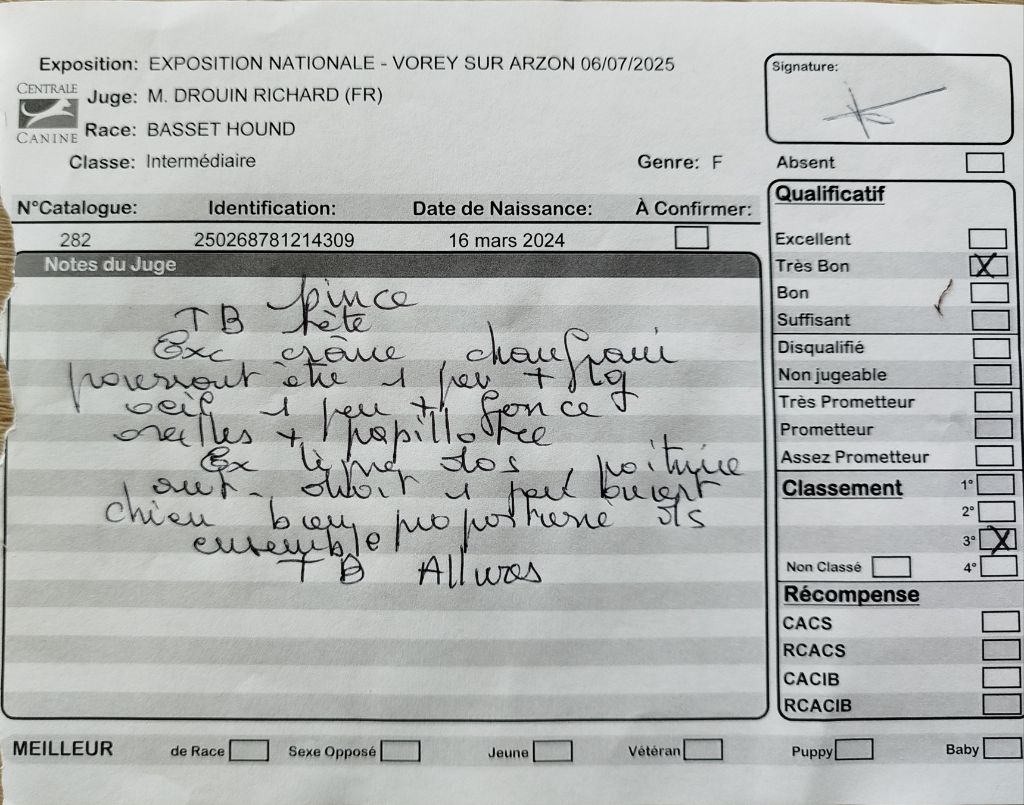 Exposition: EXPOSITION NATIONALE - VOREY SUR ARZON 06/07/2025
CENTRALE CANINE
Juge: M. DROUIN RICHARD (FR)
Race: BASSET HOUND
Classe: Intermédiaire Genre: F
N°Catalogue: Identification: Date de Naissance: À Confirmer:
282 250268781214309 16 mars 2024
Notes du Juge
pince
TB tête
Exc crâne, chanfrain
pourrait être 1 peu +
oeil 1 peu + foncé
oreilles + papillotée
Ex ligne dos, poitrine
1 peu
chien bien proportionné ds
ensemble
TB Allures
Signature:
Absent
Qualificatif
Excellent
Très Bon X
Bon
Suffisant
Disqualifié
Non jugeable
Très Prometteur
Prometteur
Assez Prometteur
Classement 1°
2°
3° X
Non Classé 4°
Récompense
CACS
RCACS
CACIB
RCACIB
MEILLEUR de Race Sexe Opposé Jeune Vétéran Puppy Baby